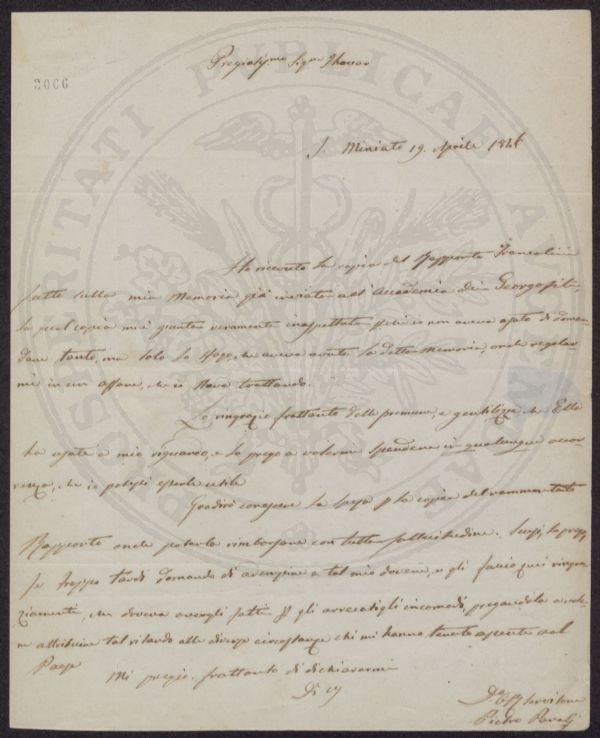 Pregiatis.mo Sig.re Thouar
2066
S. Miniato 19. Aprile 1846
Ho ricevuto la copia del Rapporto Francolini
fatto sulla mia Memoria già inviata all'Accademia dei Georgofili,
la qual copia mi è giunta veramente inaspettata perchè io non aveva osato di doman-
dare tanto, ma solo la sorte, che aveva avuto la detta Memoria, onde regolar-
mi in un affare, che io stava trattando.
La ringrazio frattanto delle premure, e gentilezze che Ella
ha usate a mio riguardo, e la prego a volermi spendere in qualunque occor-
renza, che io potessi esserle utile
Gradirò conoscere la spesa p la copia del rammentato
Rapporto onde poterla rimborsare con tutta sollecitudine. Scusi, la prego,
se troppo tardi domando di adempire a tal mio dovere, e gli faccio quei ringra-
ziamenti, che doveva avergli fatti p gli arrecatigli incomodi, pregandola a vole-
re attribuire tal ritardo alle diverse circostanze che mi hanno tenuto assente dal
Paese
Mi pregio frattanto di dichiararmi
Di
Servitore
Pietro
PROSPERITATI PUBLICAE AUGENDAE